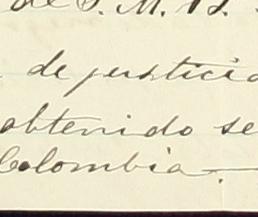 de S. M. B.
de justicia
obtenido se
Colombia.